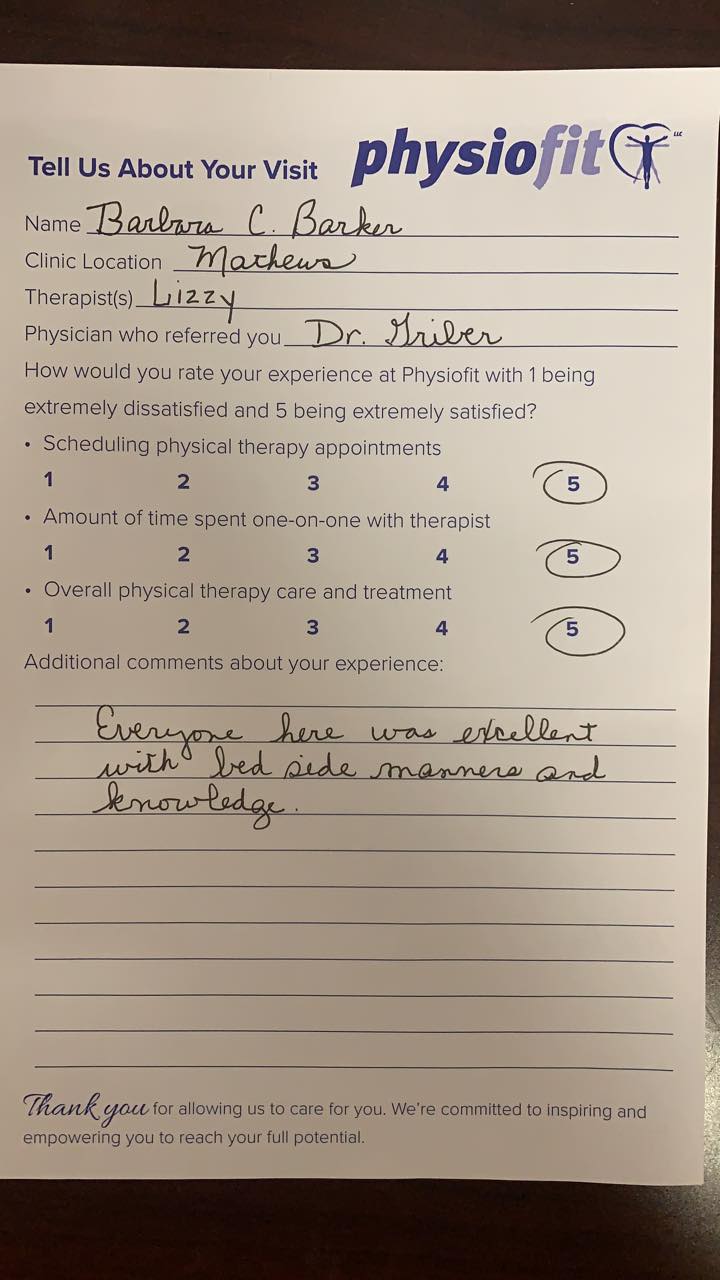 Tell Us About Your Visit physiofit LLC
Name Barbara C. Barker
Clinic Location Mathews
Therapist(s) Lizzy
Physician who referred you Dr. Griber
How would you rate your experience at Physiofit with 1 being
extremely dissatisfied and 5 being extremely satisfied?
• Scheduling physical therapy appointments
1 2 3 4 5
• Amount of time spent one-on-one with therapist
1 2 3 4 5
• Overall physical therapy care and treatment
1 2 3 4 5
Additional comments about your experience:
Everyone here was excellent
with bed side manners and
knowledge.
Thank you for allowing us to care for you. We're committed to inspiring and
empowering you to reach your full potential.